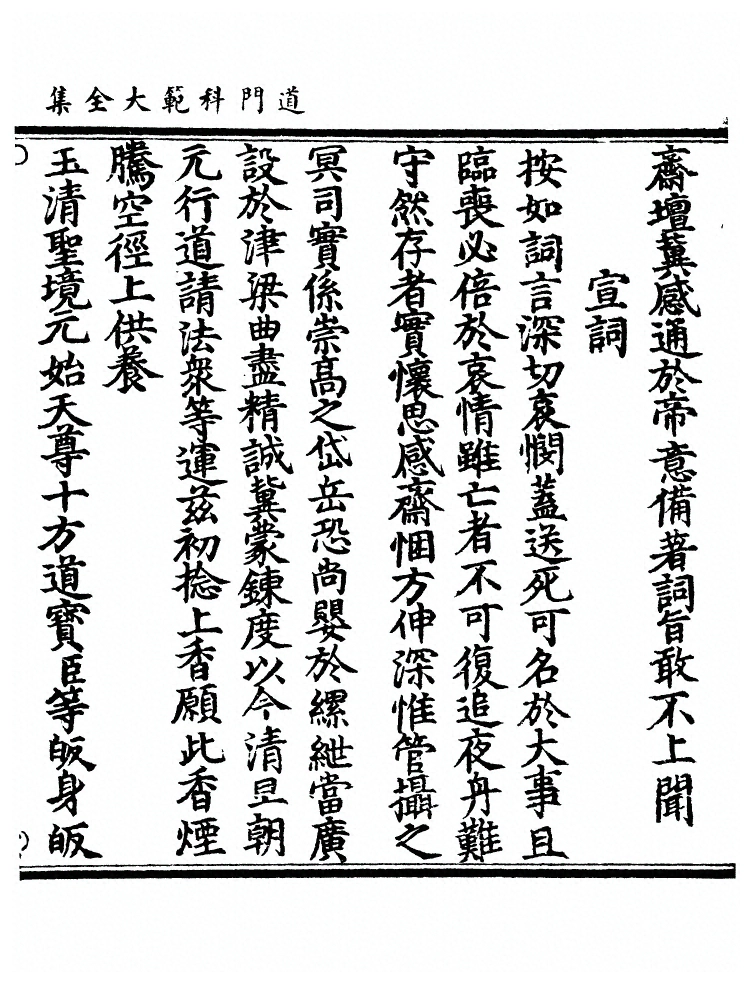 道門科範大全集
齋壇冀感通於帝意備著詞旨敢不上聞
宣詞
按如詞言深切哀憫蓋送死可名於大事且
臨喪必倍於哀情雖亡者不可復追夜舟難
守然存者實懷思感齋悃方伸深惟管攝之
冥司實係崇高之岱岳恐尚嬰於縲紲當廣
設於津梁曲盡精誠冀蒙鍊度以今清旦朝
元行道請法衆等運茲初捻上香願此香煙
騰空徑上供養
玉清聖境元始天尊十方道寶臣等皈身皈